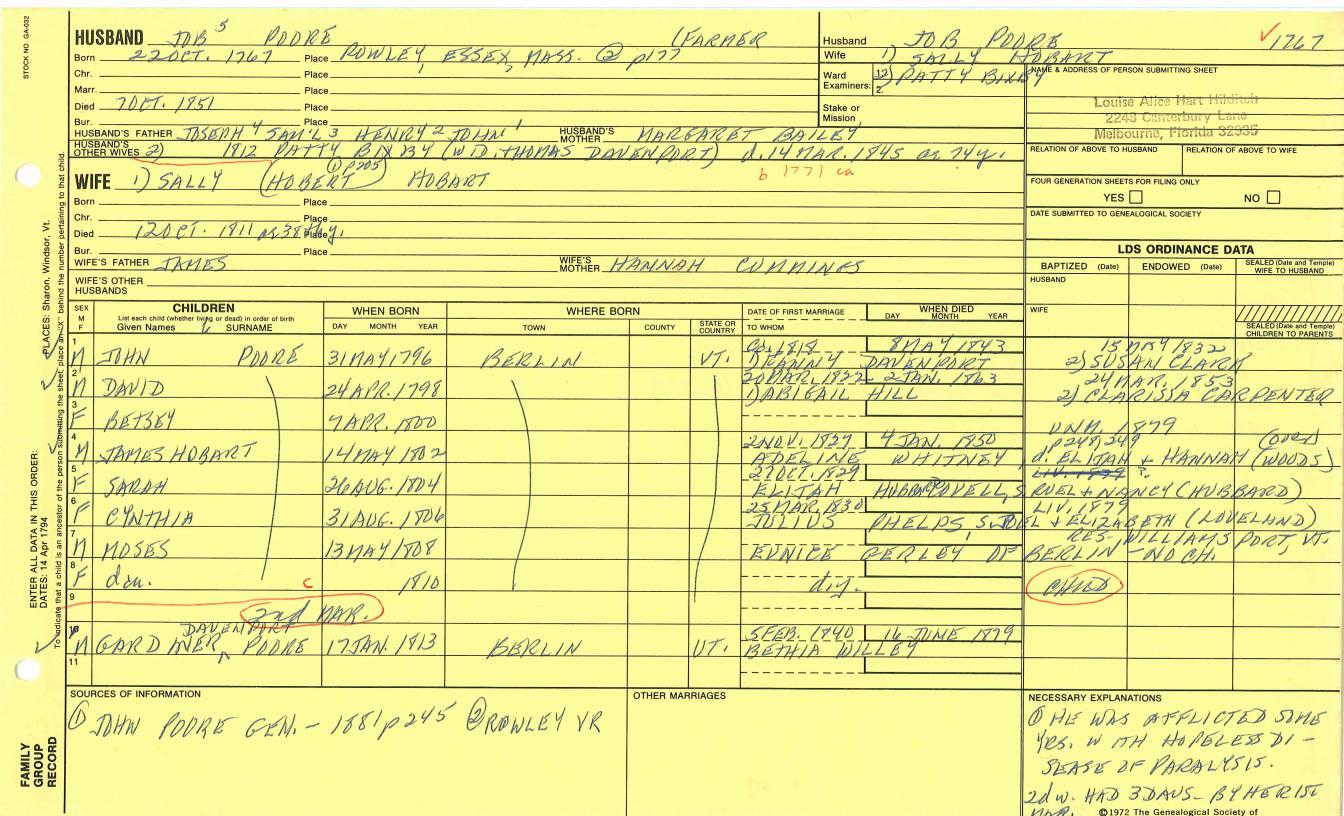 STOCK NO. GA-032
HUSBAND JOB 5 POORE (FARMER
Born 22 OCT. 1767 Place ROWLEY, ESSEX, MASS. ② p177
Chr. Place
Marr. Place
Died 7 OCT. 1851 Place
Bur. Place
HUSBAND'S FATHER JOSEPH 4 SAM'L 3 HENRY 2 JOHN 1 HUSBAND'S MOTHER MARGARET BAILEY
HUSBAND'S OTHER WIVES 2) 1812 PATTY BIXBY (WID. THOMAS DAVENPORT) d. 14 MAR. 1845 ae 74 y.
b 1771 ca
① p205
WIFE 1) SALLY (HOBERT) HOBART
Born Place
Chr. Place
Died 12 OCT. 1811 ae 38th y. Place
Bur. Place
WIFE'S FATHER JAMES WIFE'S MOTHER HANNAH CUMMINGS
WIFE'S OTHER HUSBANDS
Husband JOB POORE ✓1767
Wife 1) SALLY HOBART
Ward Examiners: 1. 2) PATTY BIXBY
2.
Stake or Mission
NAME & ADDRESS OF PERSON SUBMITTING SHEET
Louise Alice Hart Hilditch
2243 Canterbury Lane
Melbourne, Florida 32935
RELATION OF ABOVE TO HUSBAND RELATION OF ABOVE TO WIFE
FOUR GENERATION SHEETS FOR FILING ONLY
YES NO
DATE SUBMITTED TO GENEALOGICAL SOCIETY
LDS ORDINANCE DATA
BAPTIZED (Date) ENDOWED (Date) SEALED (Date and Temple) WIFE TO HUSBAND
HUSBAND
WIFE
SEALED (Date and Temple) CHILDREN TO PARENTS
SEX M F CHILDREN WHEN BORN WHERE BORN DATE OF FIRST MARRIAGE WHEN DIED
List each child (whether living or dead) in order of birth
Given Names SURNAME DAY MONTH YEAR TOWN COUNTY STATE OR COUNTRY TO WHOM DAY MONTH YEAR
1 M JOHN POORE 31 MAY 1796 BERLIN VT. Ca. 1818 8 MAY 1843 15 MAY 1832
1) FANNY DAVENPORT 2) SUSAN CLARK
2 M DAVID 24 APR. 1798 20 MAR. 1822 2 JAN. 1863 24 MAR. 1853
1) ABIGAIL HILL 2) CLARISSA CARPENTER
3 F BETSEY 7 APR. 1800 UNM. 1879
4 M JAMES HOBART 14 MAY 1802 2 NOV. 1827 4 JAN. 1850 p248, 249 (over)
ADELINE WHITNEY, d. ELIJAH & HANNAH (WOODS)
5 F SARAH 26 AUG. 1804 27 OCT. 1829 LIV. 1879 ?.
ELIJAH HUBBARD LOVELL, S RUEL & NANCY (HUBBARD)
6 F CYNTHIA 31 AUG. 1806 25 MAR. 1830 LIV. 1879
JULIUS PHELPS, S. JOEL & ELIZABETH (LOVELAND)
7 M MOSES 13 MAY 1808 RES- WILLIAMSPORT, VT.
EUNICE GERLEY OF BERLIN - NO CH.
8 F dau. c 1810 d.y. CHILD
9 2nd MAR.
DAVENPORT
10 M GARDINER ^ POORE 17 JAN. 1813 BERLIN VT. 5 FEB. 1840 16 JUNE 1879
BETHIA WILLEY
11
SOURCES OF INFORMATION
① JOHN POORE GEN. - 1881 p245 ② ROWLEY VR
OTHER MARRIAGES
NECESSARY EXPLANATIONS
① HE WAS AFFLICTED SOME
YRS. WITH HOPELESS DI-
SEASE OF PARALYSIS.
2d w. HAD 3 DAUS- BY HER 1ST
MAR.
©1972 The Genealogical Society of
ENTER ALL DATA IN THIS ORDER:
DATES: 14 Apr 1794
PLACES: Sharon, Windsor, Vt.
To indicate that a child is an ancestor of the person submitting the sheet, place an "X" behind the number pertaining to that child.
FAMILY GROUP RECORD